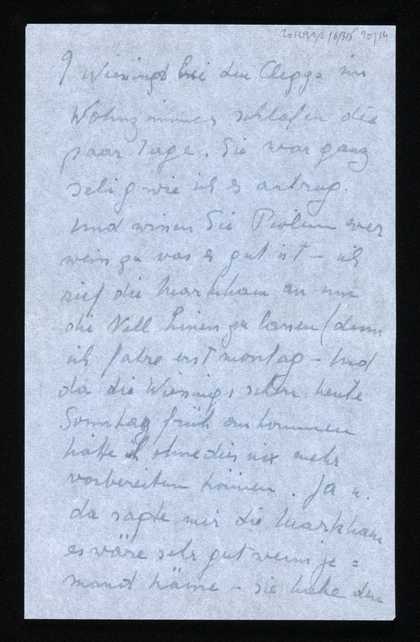 Wiesings bei den Cleggs im
Wohnzimmer schlafen die
paar Tage. Sie war ganz
selig wie ich es antrug.
Und wissen Sie
was es gut ist – ich
rief die Markham an um
die Nell hinein zu lassen (denn
ich fahre erst Montag – und
da die Wiesings schon heute
Sonntag früh ankommen
hätte ich ohnedies nix mehr
vorbereiten können. Ja u.
da sagte mir die Markham
es wäre sehr gut wenn je=
mand käme – sie habe den